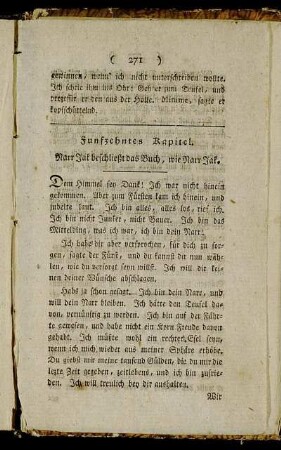 ( 271 )
gewinnen, wenn ich nicht unterschreiben wollte.
Ich schrie ihm ins Ohr: Geh er zum Teufel, und
er den aus der Hölle. Nimmer, sagte er
kopfschüttelnd.
Funfzehntes Kapitel.
Narr Jak beschließt das Buch, wie Narr Jak.
Dem Himmel sey Dank! Ich war nicht hinein
gekommen. Aber zum Fürsten kam ich hinein, und
jubelte laut. Ich bin alles, alles los, rief ich.
Ich bin nicht Junker, nicht Bauer. Ich bin das
Mittelding, was ich war, ich bin dein Narr!
Ich habs dir aber versprochen, für dich zu sor-
gen, sagte der Fürst, und du kannst nun wäh-
len, wie du versorgt seyn willst. Ich will dir kei-
nen deiner Wünsche abschlagen.
Habs ja schon gesagt. Ich bin dein Narr, und
will dein Narr bleiben. Ich hätte den Teufel da-
von, vernünftig zu werden. Ich bin auf der Fähr-
te gewesen, und habe nicht ein Korn Freude davon
gehabt. Ich müßte wohl ein rechter Esel seyn,
wenn ich mich wieder aus meiner Sphäre erhöbe.
Du giebst mir meine tausend Gülden, die du mir die
letzte Zeit gegeben, zeitlebens, und ich bin zufrie-
den. Ich will treulich bey dir aushalten.
Wir